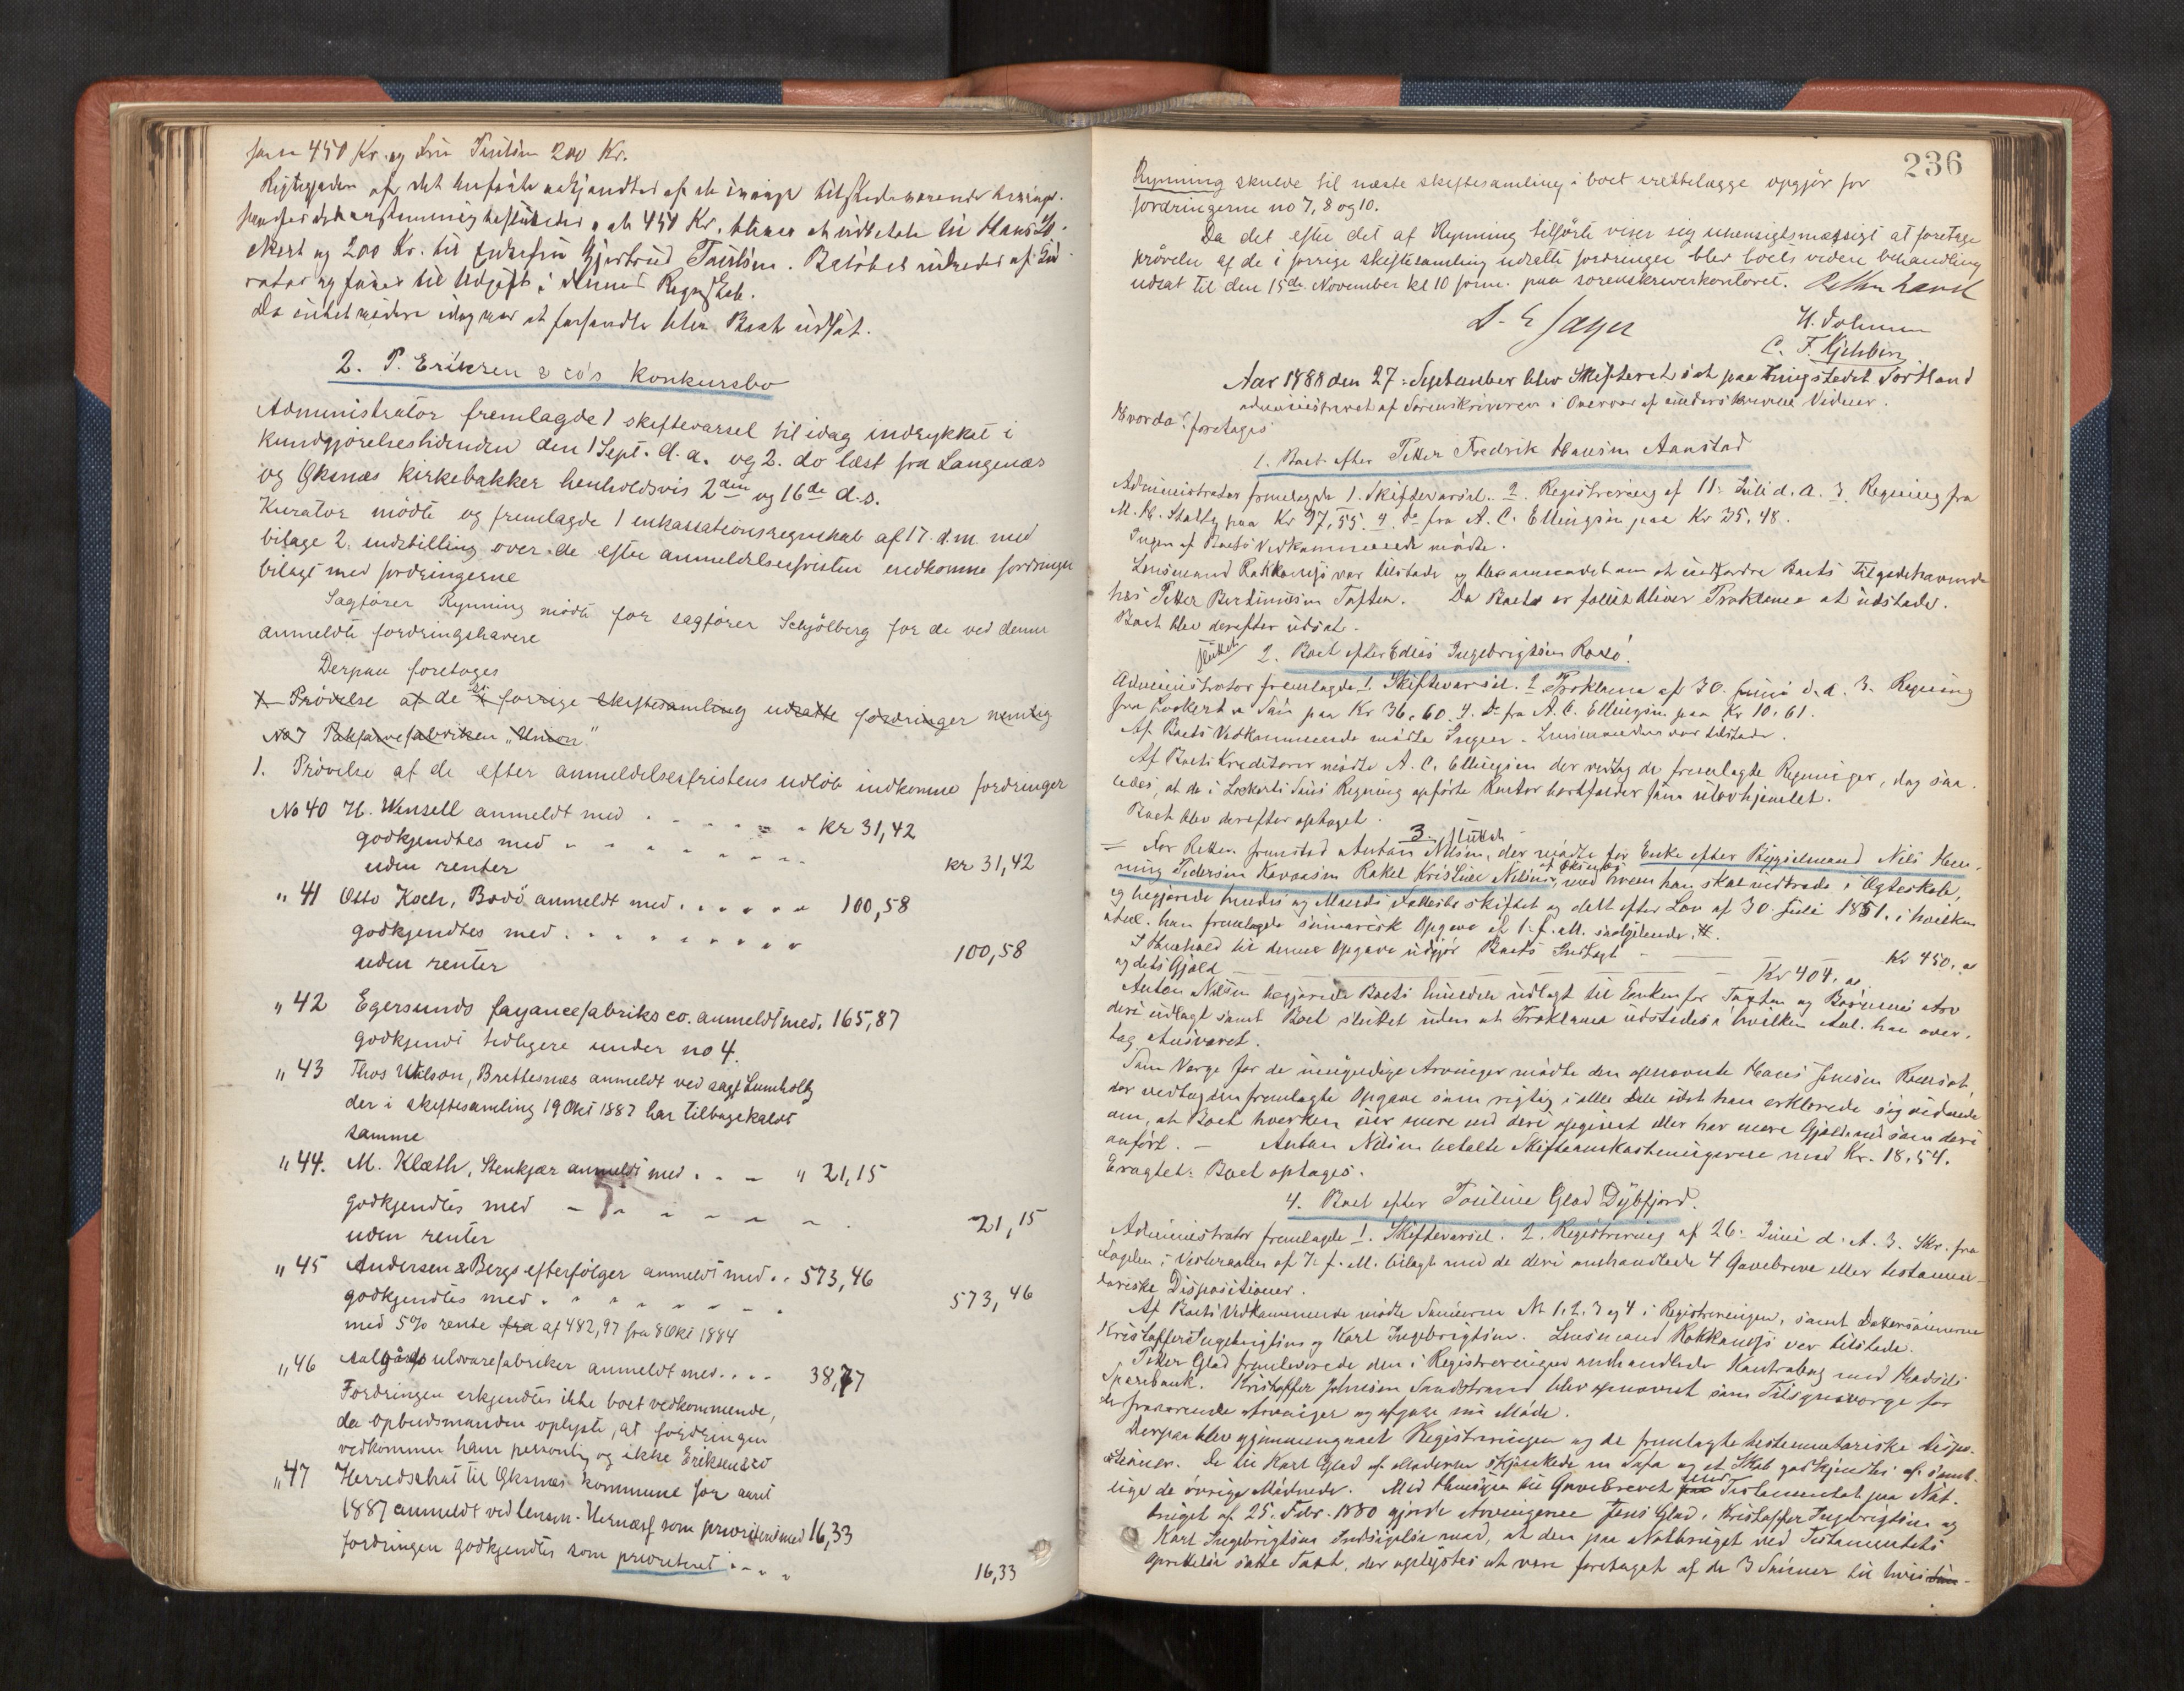 450 Kr og Fru 200 Kr.
Rigtigheden af det anførte erkjendtes af de øvrige tilstedeværende
450 Kr. bliver at udbetale til Hans
og 200 Kr. til Gjertrud. Beløbet udredes af
og føres til Udgift i Regnskab.
Da intet videre idag var at forhandle blev Boet udsat.
2. P. Eriksen & co's konkursbo
Administrator fremlagde 1 skiftevarsel til idag indrykket i
kundgjørelsestidenden den 1 Sept. d.a. og 2. do læst fra Langenæs
og Øksnæs kirkebakker henholdsvis 2den og 16de d.s.
Kurator mødte og fremlagde 1 inkassationsregnskab af 17 d.m. med
bilage 2. indstilling over de efter anmeldelsesfristen indkomne fordringer
bilagt med fordringerne
Sagfører Rynning mødte for sagfører Schjølberg for de ved denne
anmeldte fordringshavere
Derpaa foretoges
1 Prøvelse af de i forrige skiftesamling udsatte fordringer nemlig
No 7 "Union"
1. Prøvelse af de efter anmeldelsesfristens udløb indkomne fordringer
No 40 H. Wensell anmeldt med . . . . kr 31,42
godkjendtes med . . . . . . kr 31,42
uden renter
" 41 Otto Koch, Bodø anmeldt med . . . . . 100,58
godkjendtes med . . . . . . . . 100,58
uden renter
" 42 Egersunds fayancefabriks co. anmeldt med. 165,87
godkjendt tidligere under no 4.
" 43 Thos Wilson, Brettesnæs anmeldt ved sagf Lumholtz
der i skiftesamling 19 Okt 1887 har tilbagekaldt
samme
" 44. M. Klæth, Stenkjær anmeldt med . . . " 21,15
godkjendtes med . . . . . . 21,15
uden renter
" 45 Andersen & Bergs efterfølger anmeldt med . . 573,46
godkjendtes med . . . . . . . 573,46
med 5% rente fra af 482,97 fra 8 Okt 1884
" 46 Aalgårds uldvarefabriker anmeldt med . . . . 38,77
Fordringen erkjendtes ikke boet vedkommende,
da opbudsmanden oplyste, at fordringen
vedkommer ham personlig og ikke Eriksen & co
" 47 Herredsskat til Øksnæs kommune for aaret
1887 anmeldt ved lensm. som prioriteret med 16,33
fordringen godkjendtes som prioriteret . . . . 16,33
236
Rynning skulde til næste skiftesamling i boet irettelægge opgjør for
fordringerne no 7, 8 og 10.
Da det efter det af Rynning tilførte viser sig uhensigtsmæssigt at foretage
prøvelse af de i forrige skiftesamling udsatte fordringer blev boets videre behandling
udsat til den 15de November kl 10 form. paa sorenskriverkontoret.
Aar 1888 den 27. September blev Skifteret sat paa Thingstedet Sortland
administreret af Sorenskriveren i Overvær af underskrevne Vidner.
Hvorda foretoges
1. Boet efter Petter Fredrik Hansen Aanstad
Administrator fremlagde 1. Skiftevarsel. 2. Registrering af 11. Juli d. A. 3. Regning fra
paa Kr 97,55. 4. Do fra A. C. Ellingsen paa Kr 35,48.
Ingen af Boets Vedkommende mødte.
Lensmand Rokkones var tilstede og blev anmodet om at indfordre Boets Tilgodehavende
hos Petter Bertinussen. Da Boet er fallit bliver Proklama at udstede.
Boet blev derefter udsat.
sluttet
2. Boet efter Edias Ingebrigtsen
Administrator fremlagde 1 Skiftevarsel. 2 Proklama af 30. Juni d. A. 3. Regning
fra Lockert & Søn paa Kr 36,60. 4. Do fra A. C. Ellingsen paa Kr 10,61.
Af Boets Vedkommende mødte Ingen. Lensmanden var tilstede.
Af Boets Kreditorer mødte A. C. Ellingsen der vedtog de fremlagte Regninger, dog saa-
ledes, at de i Lockerts Søns Regning opførte Renter bortfalder som uhjemlet.
Boet blev derefter optaget.
3. sluttet
For Retten fremstod Anton Nilsen, der mødte for Enke efter Bygselmand Nils Hen-
ning Pedersen Rakel Kristine Nilsen, med hvem han skal indtræde i Ægteskab,
og begjærede hendes og Mands Fællesbo skiftet og dette efter Lov af 30. Juli 1851. i hvilken
Anl. han fremlagde summarisk Opgave af 1. f. M. saalydende: #.
I Henhold til denne Opgave udgjør Boets Indtægt — Kr 450.00
og dets Gjæld — Kr 404.00
Anton Nilsen begjærede Boets Eiendele udlagt til Enken for Taxten og Børnenes Arv
deri udlagt samt Boet sluttet uden at Proklama udstedes i hvilken Anl. han over-
tog Ansvaret.
Som Værge for de umyndige Arvinger mødte den opnævnte Hans Jensen
der vedtog den fremlagte Opgave som rigtig i alle Dele idet han erklærede sig vidende
om, at Boet hverken eier mere end deri opgivet eller har mere Gjæld end som deri
anført. — Anton Nilsen betalte Skifteomkostningerne med Kr. 18,54.
Eragtet: Boet optages.
4. Boet efter Pauline Glad Dybfjord.
Administrator fremlagde 1. Skiftevarsel. 2. Registrering af 26. Juni d. A. 3. Skr. fra
Fogden i Vesteraalen af 7. f. M. bilagt med de deri omhandlede 4 Gavebreve eller testamen-
tariske Dispositioner.
Af Boets Vedkommende mødte Sønnerne No 1, 2, 3 og 4 i Registreringen, samt Dattersønnerne
Kristoffer Ingebrigtsen og Karl Ingebrigtsen. Lensmand Rokkones var tilstede.
Petter Glad fremleverede den i Registreringen omhandlede Kontrabog med Hadsels
Sparebank. Kristoffer Johnsen Sandstrand blev opnævnt som Tilsynsværge for
de fraværende Arvinger og afgave sit Møde.
Derpaa blev gjennemgaaet Registreringen og de fremlagte testamentariske Dispo-
sitioner. De til Karl Glad af Moderen skjænkede en Sofa og et Skab godkjendtes af samt-
lige de øvrige Mødende. Med Hensyn til Gavebrevet med Testamentet paa Not-
bruget af 25. Febr. 1880 gjorde Arvingerne Jens Glad, Kristoffer Ingebrigtsen og
Karl Ingebrigtsen Indsigelse mod, at den paa Notbruget ved Testamentets
Oprettelse satte Taxt, der oplystes at være foretaget af de 3 Sønner til hvis